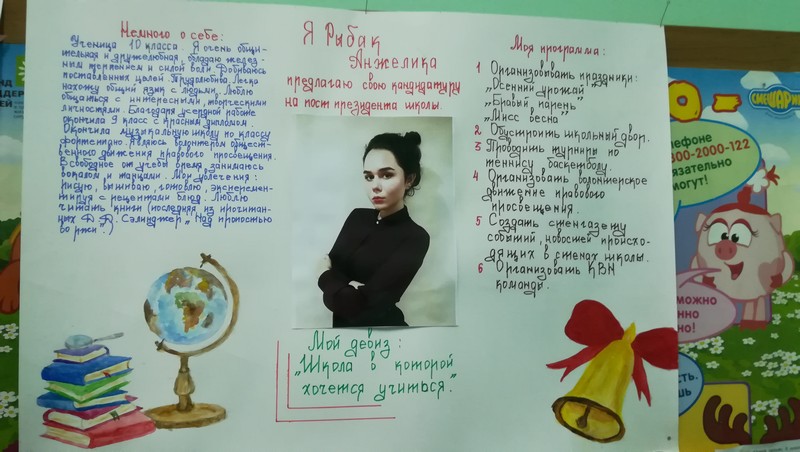 Немного о себе:
Ученица 10 класса. Я очень общи-
тельная и дружелюбная, обладаю желез-
ным терпением и силой воли. Добиваюсь
поставленных целей. Трудолюбива. Легко
нахожу общий язык с людьми. Люблю
общаться с интересными, творческими
личностями. Благодаря усердной работе
окончила 9 класс с красным дипломом.
Окончила музыкальную школу по классу
фортепиано. Являюсь волонтером общест-
венного движения правового просвещения.
В свободное от учебы время занимаюсь
вокалом и танцами. Мои увлечения:
рисую, вышиваю, готовлю, эксперемен-
тируя с рецептами блюд. Люблю
читать книги (последняя из прочитан-
ных Дж. Д. Сэлинджер „Над пропостью
во ржи").
Я Рыбак
Анжелика
предлагаю свою кандидатуру
на пост президента школы.
Мой девиз:
„Школа в которой
хочется учиться."
Моя программа:
1 Организовывать праздники:
„Осенний урожай"
„Бравый парень"
„Мисс весна"
2 Обустроить школьный двор.
3 Проводить турниры по
теннису, баскетболу.
4 Организовать волонтерское
движение правового
просвещения.
5 Создать стенгазету
событий, новостей происхо-
дящих в стенах школы.
6 Организовать КВН
команды.
СМЕШАРИКИ
телефоне
800-2000-122
язательно
могут!
можно
нно
но!
сть.
шь